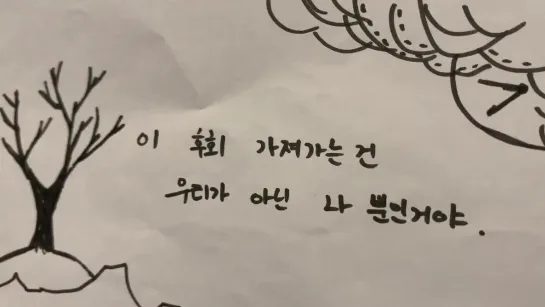 이 후회 가져가는 건
우리가 아닌 나 뿐인거야.